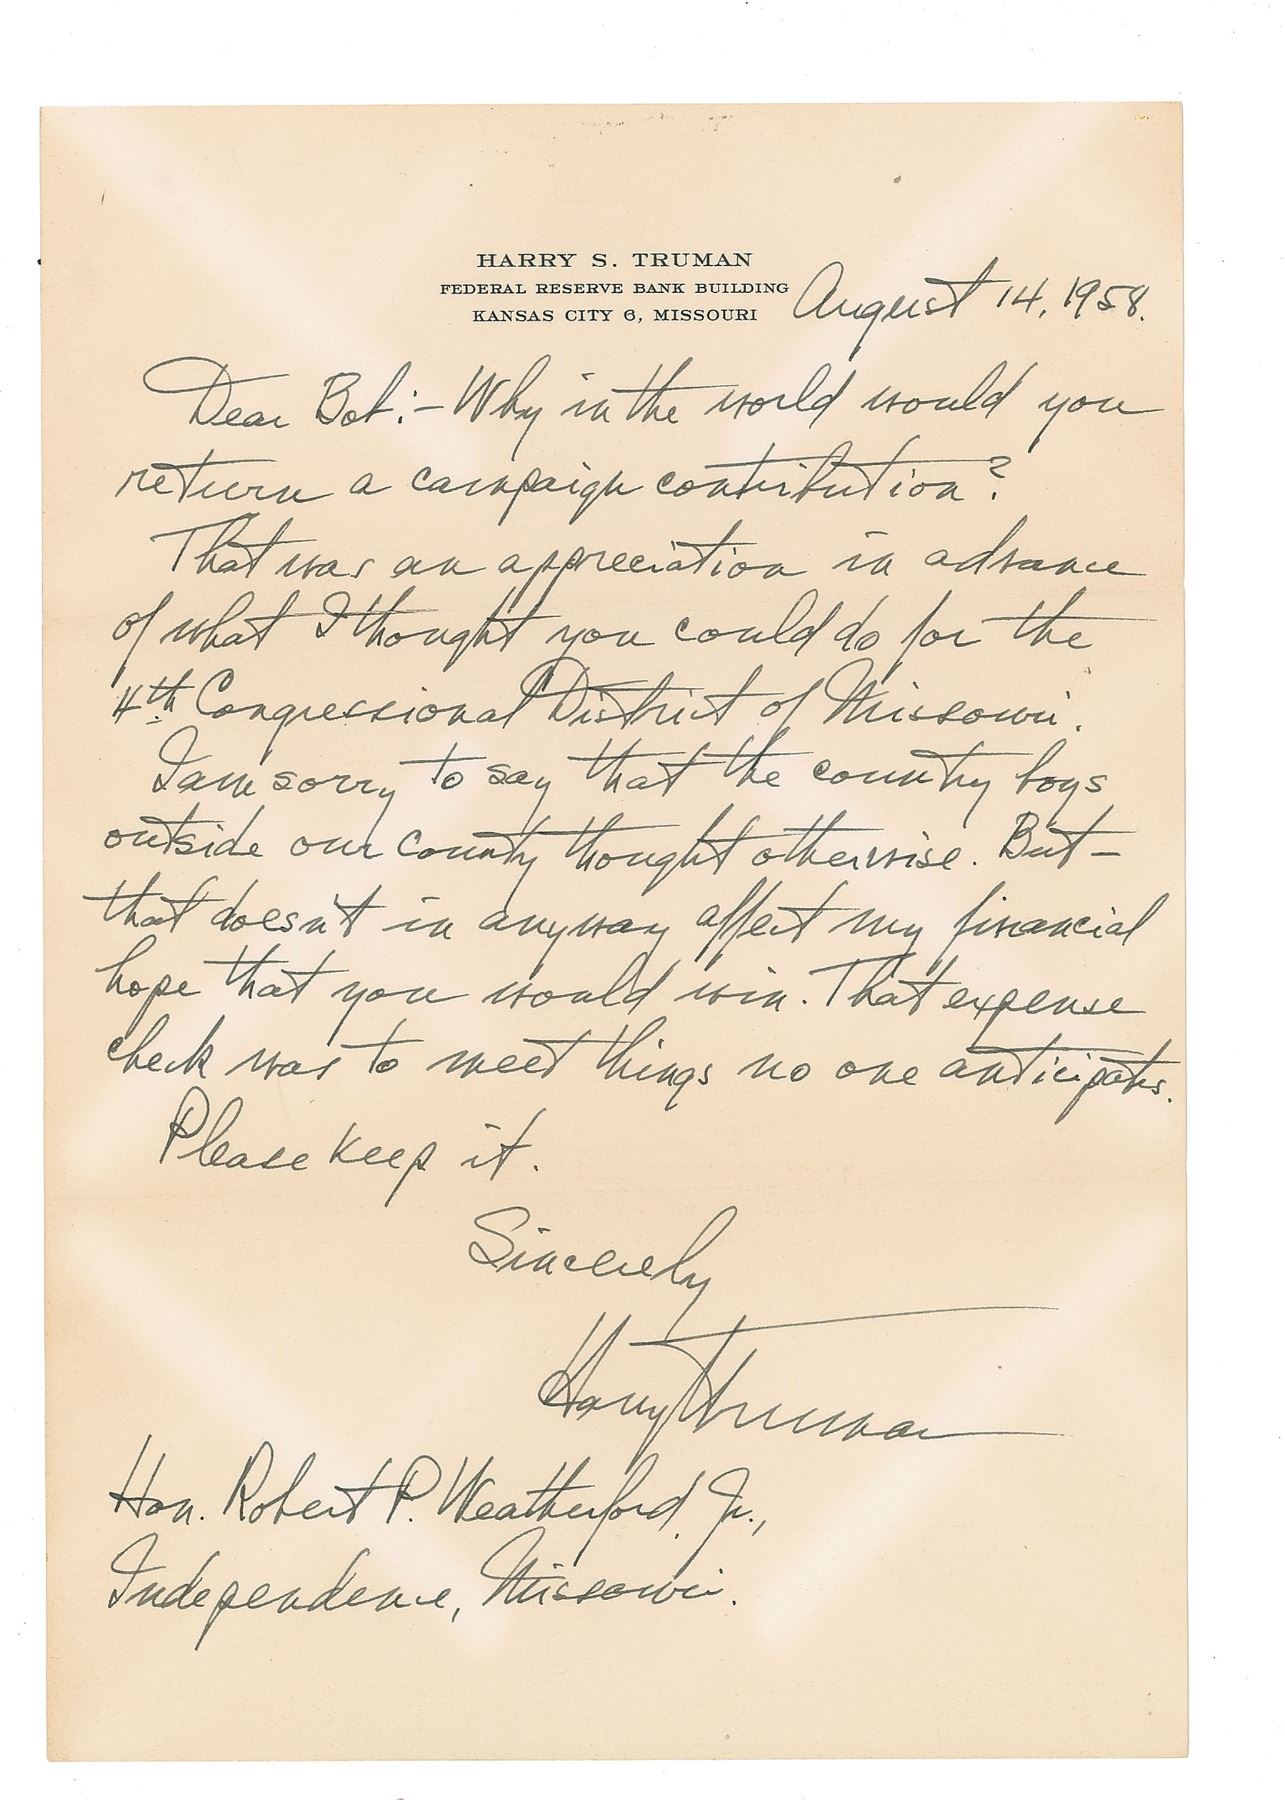 HARRY S. TRUMAN
FEDERAL RESERVE BANK BUILDING
KANSAS CITY 6, MISSOURI
August 14, 1958.
Dear Bob:- Why in the world would you
return a campaign contribution?
That was an appreciation in advance
of what I thought you could do for the
4th Congressional District of Missouri.
I am sorry to say that the country boys
outside our county thought otherwise. But-
that doesn't in anyway affect my financial
hope that you would win. That expense
check was to meet things no one anticipates.
Please keep it.
Sincerely
Harry Truman
Hon. Robert P. Weatherford, Jr.,
Independence, Missouri.